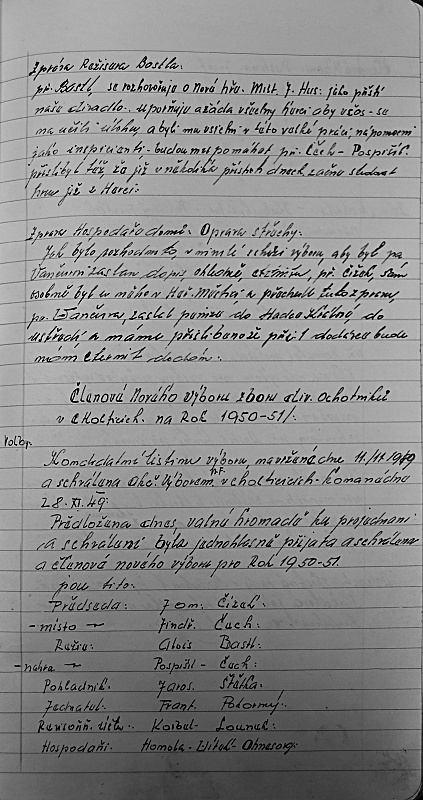 Zpráva Režiséra Bastla.
př. Bastl, se rozhovořuje o Nové hře. Mist. J. Hus. jako příští
naše divadlo. uporňuje a žádá všechny herci aby včas - se
na učili úlohy, a byli mu všichni v této velké práci, nápomocni
jako inspicienti - budou mu pomáhat př. Čech - Pospíšil.
přislíbil též, že již v několika příštích dnech začne sledovat
hru již s Herci.
Zpráva Hospodářů domu. Oprava střechy.
Jak bylo rozhodnuto, v minulé schůzi výboru, aby byl pa
Vančurovi zaslán dopis ohledně, eternitu, př. Čížek, sám
osobně byl u něho v Hař. Městci a přednesl tuto zprávu,
do
ústředí a máme přislíbeno že při I dodávce bude
nám eternit dodán.
Členové Nového výboru sboru div. ochotníků
v Cholticích. na Rok 1950-51/.
Volby.
Kandidátní listina výboru, navržená dne 11/11. 1949
a schválena Akč. Výborem N.F. v Cholticích - konaná dne
28. XI. 49.
Předložena dnes, valné hromadě ku projednání
a schválení byla jednohlasně přijata a schválena
a členové nového výboru pro Rok 1950-51.
jsou tito:
Předseda: Jom: Čížek:
- místo ~ Jindř. Čech:
Režie: Alois Bastl:
- náhra ~ Pospíšil - Čech:
Pokladník. Jaros. Štětka.
Jednatel: Frant. Pokorný.
Revisoři. účtů - Korbel - Lounek:
Hospodáři: Homola - Vítek - Ohnesorg: